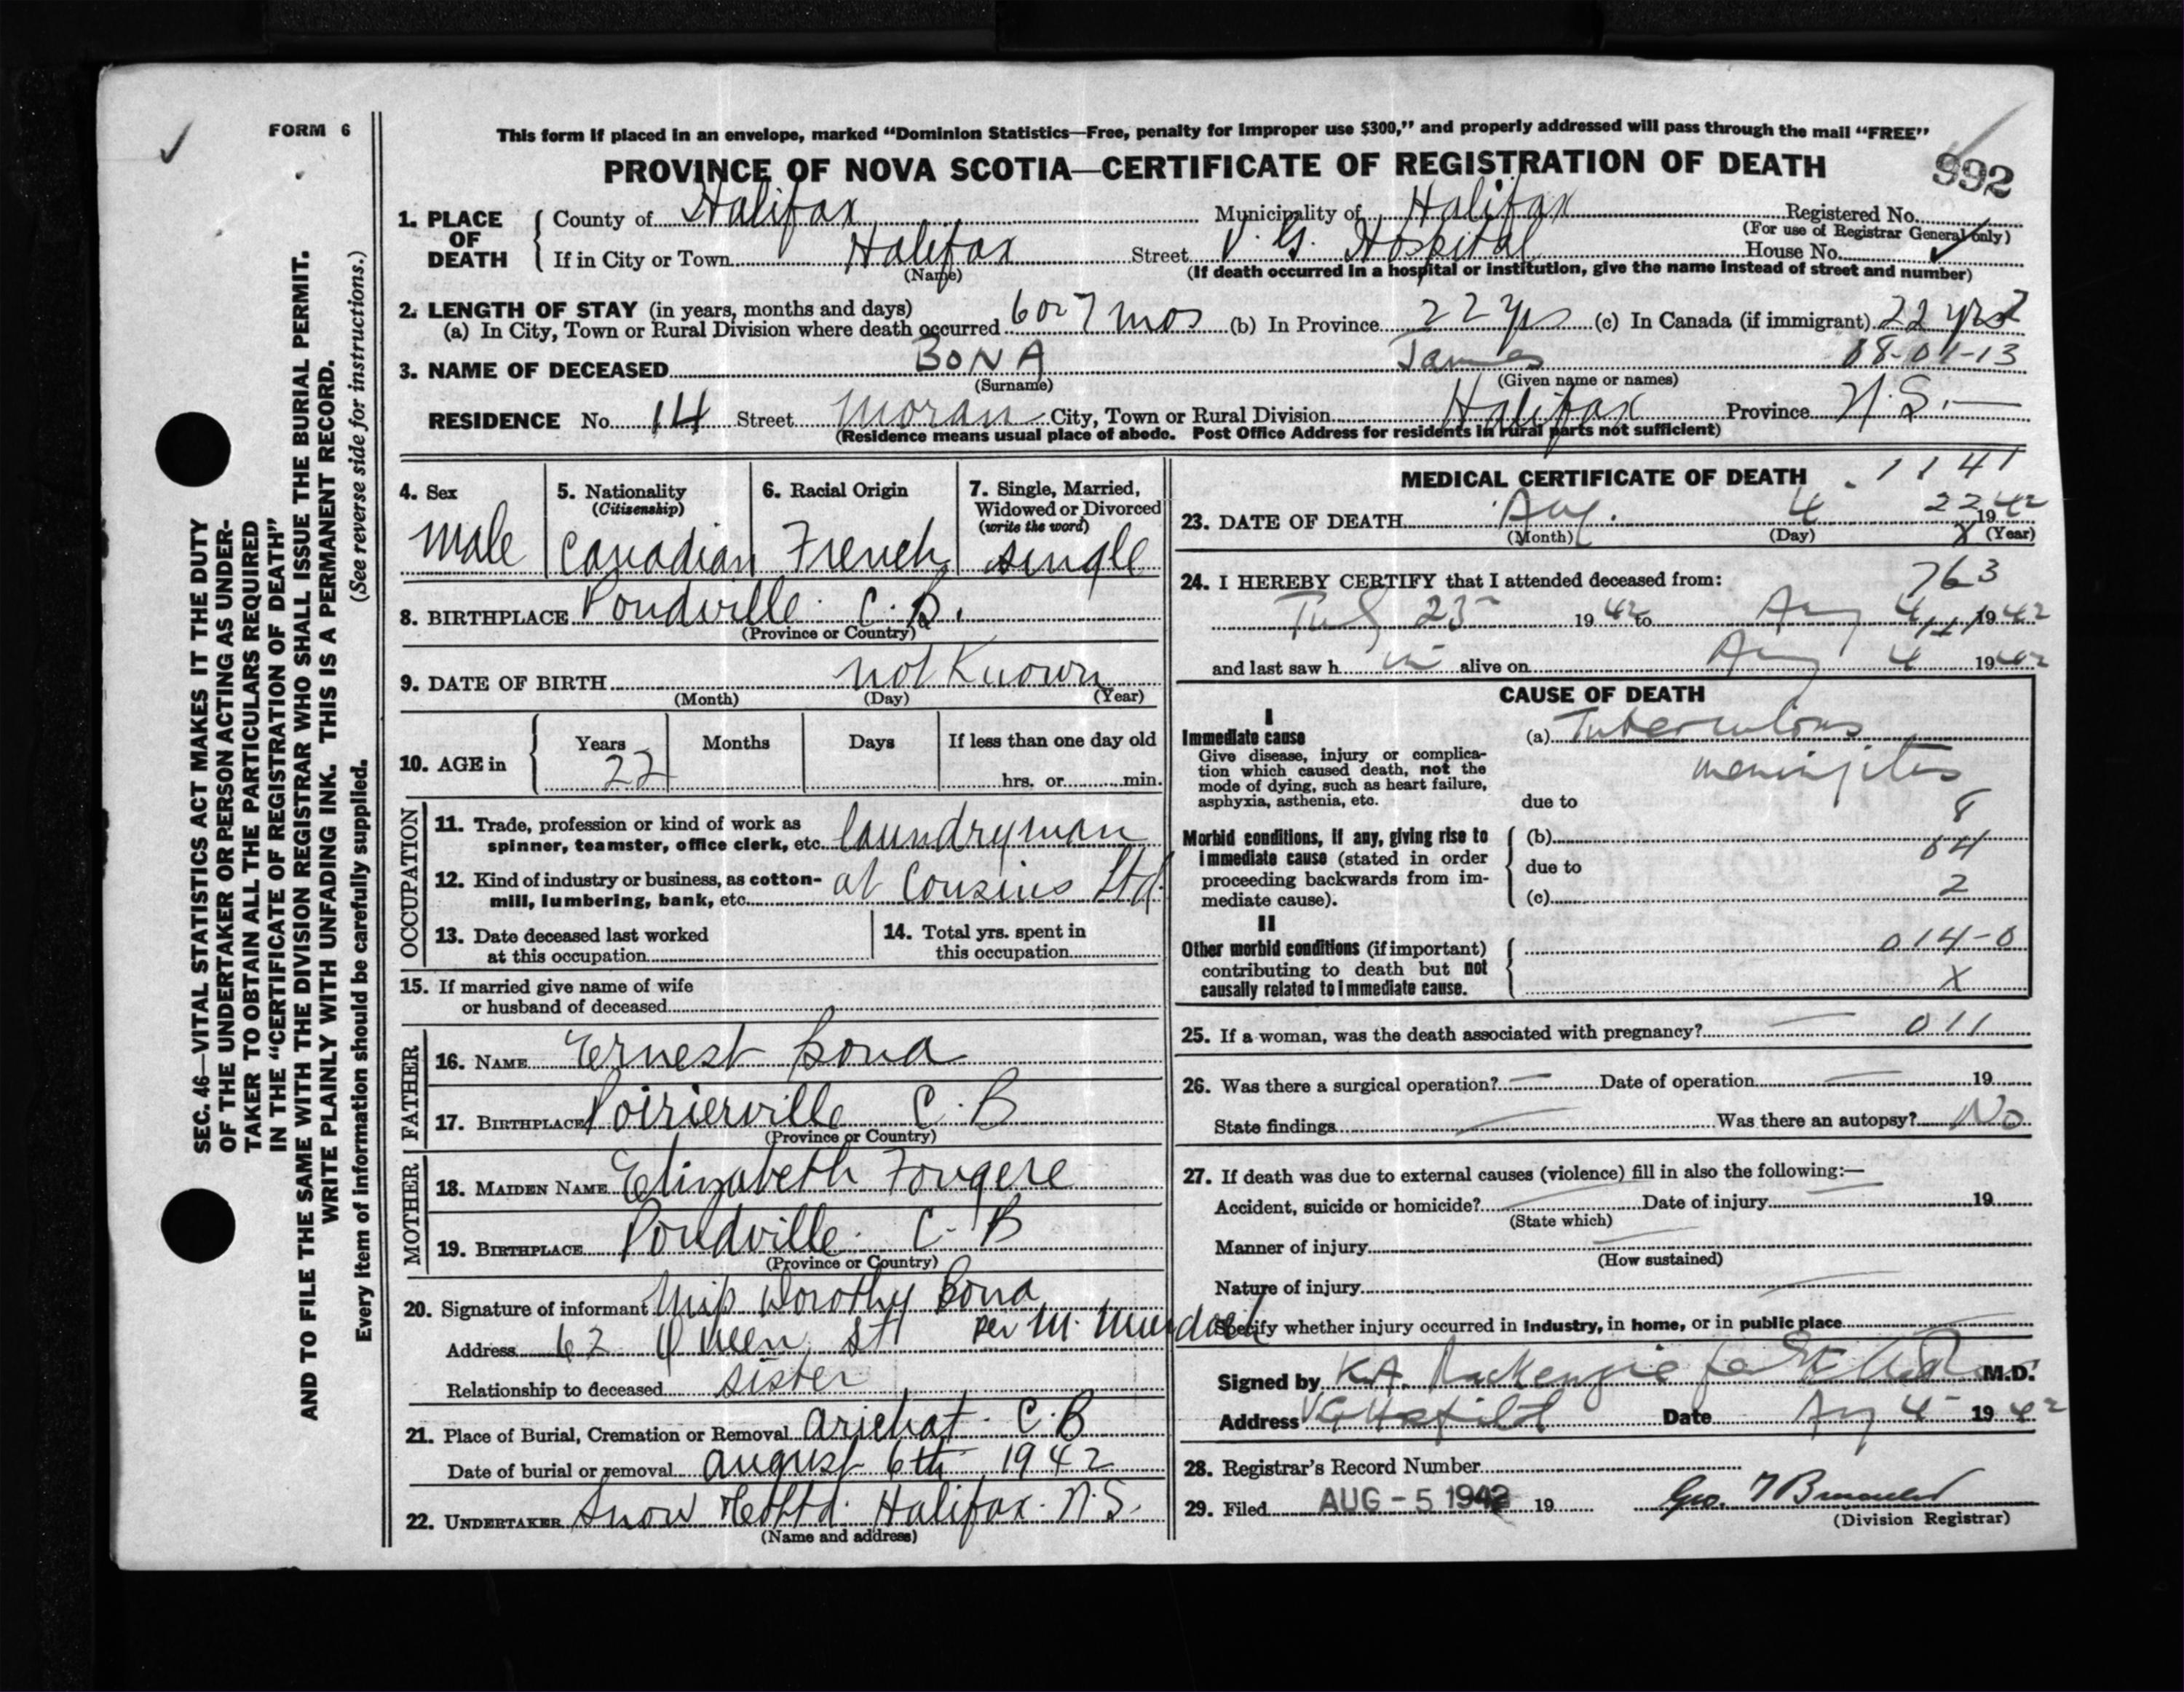 FORM 6
This form if placed in an envelope, marked “Dominion Statistics—Free, penalty for improper use $300,” and properly addressed will pass through the mail “FREE”
PROVINCE OF NOVA SCOTIA—CERTIFICATE OF REGISTRATION OF DEATH
992
1. PLACE OF DEATH
County of Halifax Municipality of Halifax Registered No.
(For use of Registrar General only)
If in City or Town Halifax Street V. G. Hospital House No.
(Name) (If death occurred in a hospital or institution, give the name instead of street and number)
2. LENGTH OF STAY (in years, months and days)
(a) In City, Town or Rural Division where death occurred 6 or 7 mos (b) In Province 22 yrs (c) In Canada (if immigrant) 22 yrs
3. NAME OF DECEASED BONA James 08-01-13
(Surname) (Given name or names)
RESIDENCE No. 14 Street Moran City, Town or Rural Division Halifax Province N.S.—
(Residence means usual place of abode. Post Office Address for residents in rural parts not sufficient)
SEC. 46—VITAL STATISTICS ACT MAKES IT THE DUTY
OF THE UNDERTAKER OR PERSON ACTING AS UNDER-
TAKER TO OBTAIN ALL THE PARTICULARS REQUIRED
IN THE “CERTIFICATE OF REGISTRATION OF DEATH”
AND TO FILE THE SAME WITH THE DIVISION REGISTRAR WHO SHALL ISSUE THE BURIAL PERMIT.
WRITE PLAINLY WITH UNFADING INK. THIS IS A PERMANENT RECORD.
Every item of information should be carefully supplied. (See reverse side for instructions.)
4. Sex Male
5. Nationality (Citizenship) Canadian
6. Racial Origin French
7. Single, Married, Widowed or Divorced (write the word) single
8. BIRTHPLACE Poudville C.B.
(Province or Country)
9. DATE OF BIRTH not Known
(Month) (Day) (Year)
10. AGE in Years 22 Months Days If less than one day old
hrs. or min.
OCCUPATION
11. Trade, profession or kind of work as
spinner, teamster, office clerk, etc. laundryman
12. Kind of industry or business, as cotton-
mill, lumbering, bank, etc. at Cousins Ltd.
13. Date deceased last worked
at this occupation
14. Total yrs. spent in
this occupation
15. If married give name of wife
or husband of deceased
FATHER
16. NAME Ernest Bona
17. BIRTHPLACE Poirierville C.B
(Province or Country)
MOTHER
18. MAIDEN NAME Elizabeth Fougere
19. BIRTHPLACE Poudville C-B
(Province or Country)
20. Signature of informant Miss Dorothy Bona
per M. Murdoch
Address 62 Queen St
Relationship to deceased sister
21. Place of Burial, Cremation or Removal Arichat C.B
Date of burial or removal August 6th 1942
22. UNDERTAKER Snow Ltd. Halifax N.S.
(Name and address)
MEDICAL CERTIFICATE OF DEATH 1141
23. DATE OF DEATH Aug. 4 22 1942
(Month) (Day) X (Year)
24. I HEREBY CERTIFY that I attended deceased from: 763
23 1942 to Aug 4 1942
and last saw h im alive on Aug 4 1942
CAUSE OF DEATH
I
Immediate cause
Give disease, injury or complica-
tion which caused death, not the
mode of dying, such as heart failure,
asphyxia, asthenia, etc.
(a) Tuberculous
meningitis
due to 8
Morbid conditions, if any, giving rise to
immediate cause (stated in order
proceeding backwards from im-
mediate cause).
(b) 04
due to
(c) 2
II
Other morbid conditions (if important)
contributing to death but not
causally related to immediate cause.
014-0
X
25. If a woman, was the death associated with pregnancy? — 011
26. Was there a surgical operation? — Date of operation — 19
State findings — Was there an autopsy? No
27. If death was due to external causes (violence) fill in also the following:—
Accident, suicide or homicide? Date of injury 19
(State which)
Manner of injury
(How sustained)
Nature of injury
Specify whether injury occurred in industry, in home, or in public place
Signed by K.A. MacKenzie M.D.
Address V G Hospital Date Aug 4 1942
28. Registrar's Record Number
29. Filed AUG - 5 1942 19
(Division Registrar)